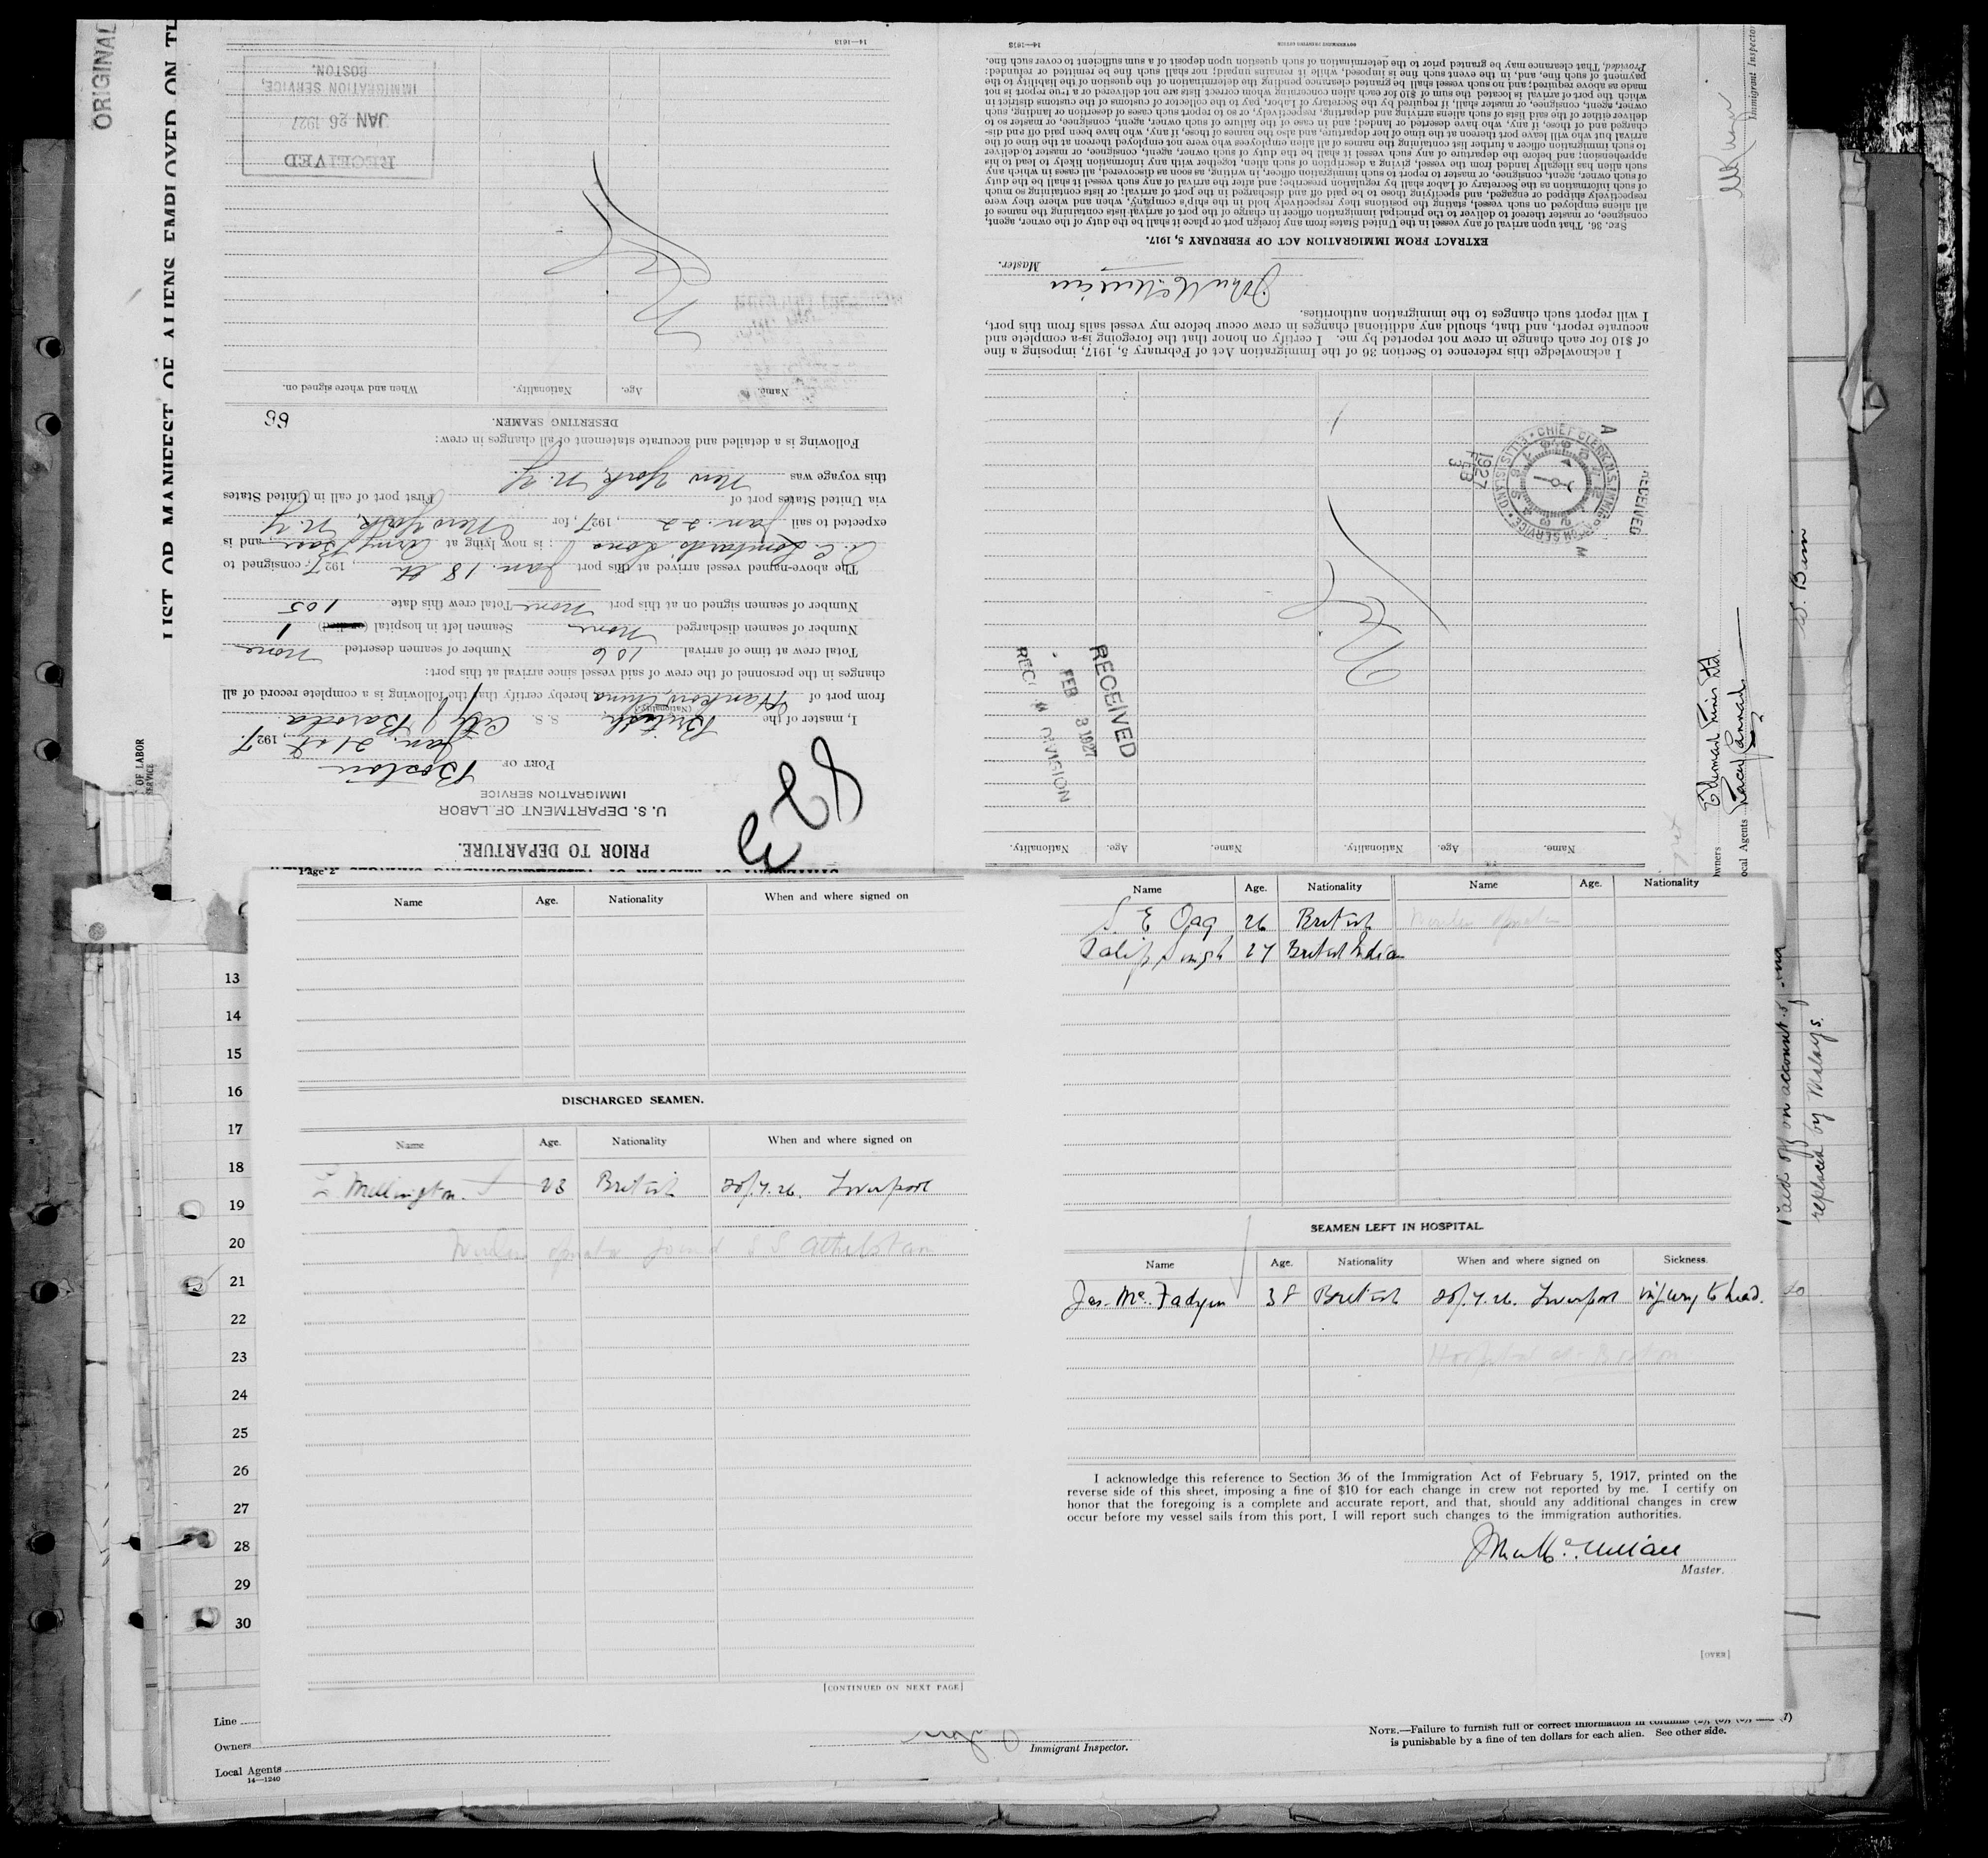 ORIGINAL
LIST OR MANIFEST OF ALIENS EMPLOYED ON TH
OF LABOR
SERVICE
PRIOR TO DEPARTURE.
U. S. DEPARTMENT OF LABOR
IMMIGRATION SERVICE
PORT OF Boston
Jan. 21st, 1927.
I, master of the British S. S. City of Baroda
(Nationality.)
from port of Hankow, China hereby certify that the following is a complete record of all
changes in the personnel of the crew of said vessel since arrival at this port:
Total crew at time of arrival 106 Number of seamen deserted none
Number of seamen discharged none Seamen left in hospital 1
Number of seamen signed on at this port none Total crew this date 105
The above-named vessel arrived at this port Jan. 18th, 1927, consigned to
A. C. Lombards Sons; is now lying at Army Base and is
expected to sail Jan. 22, 1927, for New York, N.Y.
via United States port of First port of call in United States
this voyage was New York, N.Y.
Following is a detailed and accurate statement of all changes in crew:
DESERTING SEAMEN.
Name. Age. Nationality. When and where signed on.
Nil
RECEIVED
JAN 26 1927
IMMIGRATION SERVICE,
BOSTON.
14—1613
Name. Age. Nationality. Name. Age. Nationality.
Nil
RECEIVED
FEB 3 1927
DIVISION
RECEIVED
CHIEF CLERK, U.S. IMMIGRATION SERVICE • ELLIS ISLAND
1927
FEB
3
I acknowledge this reference to Section 36 of the Immigration Act of February 5, 1917, imposing a fine
of $10 for each change in crew not reported by me. I certify on honor that the foregoing is a complete and
accurate report, and that, should any additional changes in crew occur before my vessel sails from this port,
I will report such changes to the immigration authorities.
Master.
EXTRACT FROM IMMIGRATION ACT OF FEBRUARY 5, 1917.
SEC. 36. That upon arrival of any vessel in the United States from any foreign port or place it shall be the duty of the owner, agent,
consignee, or master thereof to deliver to the principal immigration officer in charge of the port of arrival lists containing the names of
all aliens employed on such vessel, stating the positions they respectively hold in the ship's company, when and where they were
respectively shipped or engaged, and specifying those to be paid off and discharged in the port of arrival; or lists containing so much
of such information as the Secretary of Labor shall by regulation prescribe; and after the arrival of any such vessel it shall be the duty
of such owner, agent, consignee, or master to report to such immigration officer, in writing, as soon as discovered, all cases in which any
such alien has illegally landed from the vessel, giving a description of such alien, together with any information likely to lead to his
apprehension; and before the departure of any such vessel it shall be the duty of such owner, agent, consignee, or master to deliver
to such immigration officer a further list containing the names of all alien employees who were not employed thereon at the time of the
arrival but who will leave port thereon at the time of her departure, and also the names of those, if any, who have been paid off and dis-
charged and of those, if any, who have deserted or landed; and in case of the failure of such owner, agent, consignee, or master so to
deliver either of the said lists of such aliens arriving and departing, respectively, or so to report such cases of desertion or landing, such
owner, agent, consignee, or master shall, if required by the Secretary of Labor, pay to the collector of customs of the customs district in
which the port of arrival is located the sum of $10 for each alien concerning whom correct lists are not delivered or a true report is not
made as above required; and no such vessel shall be granted clearance pending the determination of the question of the liability to the
payment of such fine, and, in the event such fine is imposed, while it remains unpaid; nor shall such fine be remitted or refunded:
Provided, That clearance may be granted prior to the determination of such question upon deposit of a sum sufficient to cover such fine.
GOVERNMENT PRINTING OFFICE
14—1613
Immigrant Inspector
Owners
Local Agents
Paid off on account
replaced by Malays.
Page 2
Name Age. Nationality When and where signed on
DISCHARGED SEAMEN.
Name Age. Nationality When and where signed on
L. Mellington. 23 British 20/.7.26. Liverpool
Wireless operator joined S S Athelstan
[CONTINUED ON NEXT PAGE]
Name Age. Nationality Name Age. Nationality
S. E Oag 26 British Wireless operator
Dalip Singh 27 British Indian
SEAMEN LEFT IN HOSPITAL.
Name Age. Nationality When and where signed on Sickness.
Jas. Mc. Fadyen 38 British 20/.7.26. Liverpool injury to head.
Hospital at Boston
I acknowledge this reference to Section 36 of the Immigration Act of February 5, 1917, printed on the
reverse side of this sheet, imposing a fine of $10 for each change in crew not reported by me. I certify on
honor that the foregoing is a complete and accurate report, and that, should any additional changes in crew
occur before my vessel sails from this port, I will report such changes to the immigration authorities.
Master.
[OVER]
13
14
15
16
17
18
19
20
21
22
23
24
25
26
27
28
29
30
Line
Owners
Local Agents
14—1240
Immigrant Inspector.
NOTE.—Failure to furnish full or correct information in columns
is punishable by a fine of ten dollars for each alien. See other side.